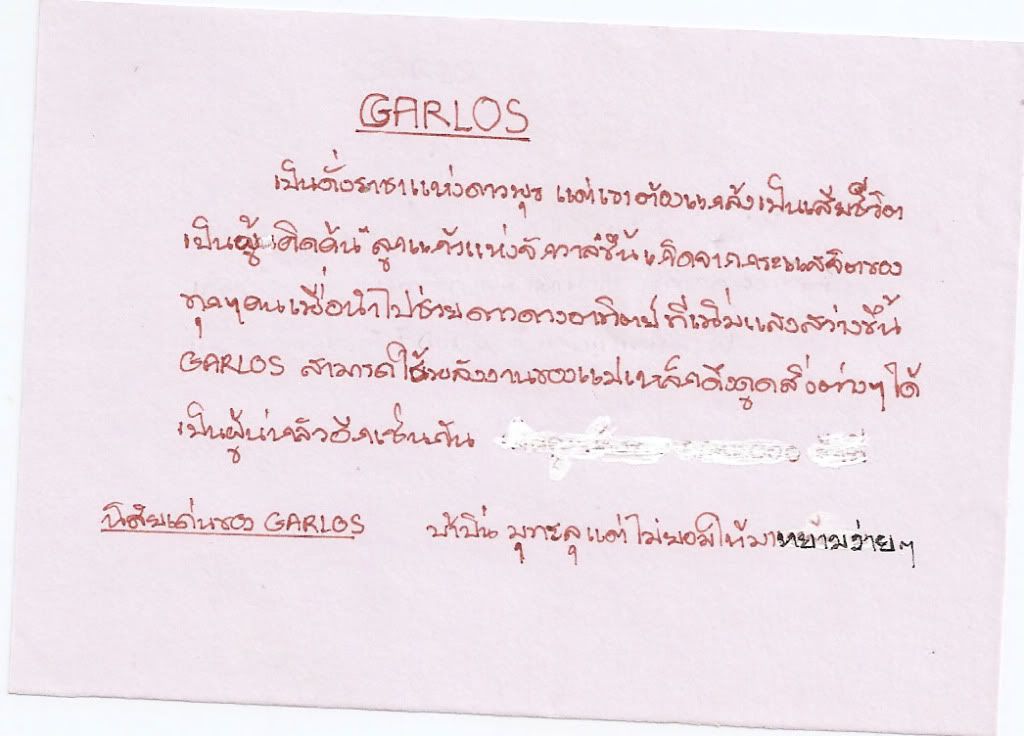 GARLOS
เป็นดั่งราชาแห่งดาวพุธ แต่เขาต้องแกล้งเป็นเสียชีวิต
เป็นผู้คิดค้น "ลูกแก้วแห่งจักวาล" ขึ้น เกิดจากกระแสจิตของ
ทุกๆคน เพื่อนำไปช่วยดาวดวงอาทิตย์ ที่เริ่มแสงสว่างขึ้น
GARLOS สามารถใช้พลังงานของแม่เหล็กดึงดูดสิ่งต่างๆ ได้
เป็นผู้น่ากลัวอีกเช่นกัน
นิสัยเด่นของ GARLOS บ้าบิ่น มุทะลุ แต่ไม่ยอมให้มาหยามง่ายๆ